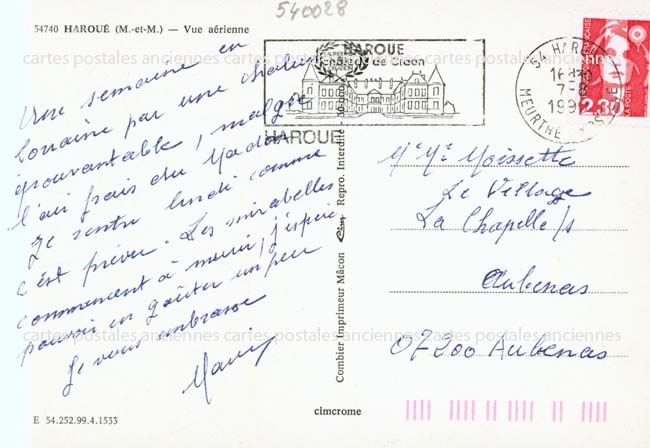 540028
54740 HAROUÉ (M.-et-M.) — Vue aérienne
Une semaine en
Lorraine par une chaleur
épouvantable, malgré
l'air frais du Madon
Je rentre lundi comme
c'est prévu. Les mirabelles
commencent à murir, j'espère
pouvoir en goûter un peu
Je vous embrasse
HAROUE
château de Craon
HAROUE
54 HAROUE
16H
7-8
MEURTHE
2,30
LA POSTE
Mr Me Moissette
Le Village
La Chapelle/s
Aubenas
07200 Aubenas
Combier Imprimeur Mâcon Cim Repro. Interdite
cimcrome
E 54.252.99.4.1533
cartes postales anciennes cartes postales anciennes cartes postales anciennes
cartes postales anciennes cartes postales anciennes cartes postales anciennes